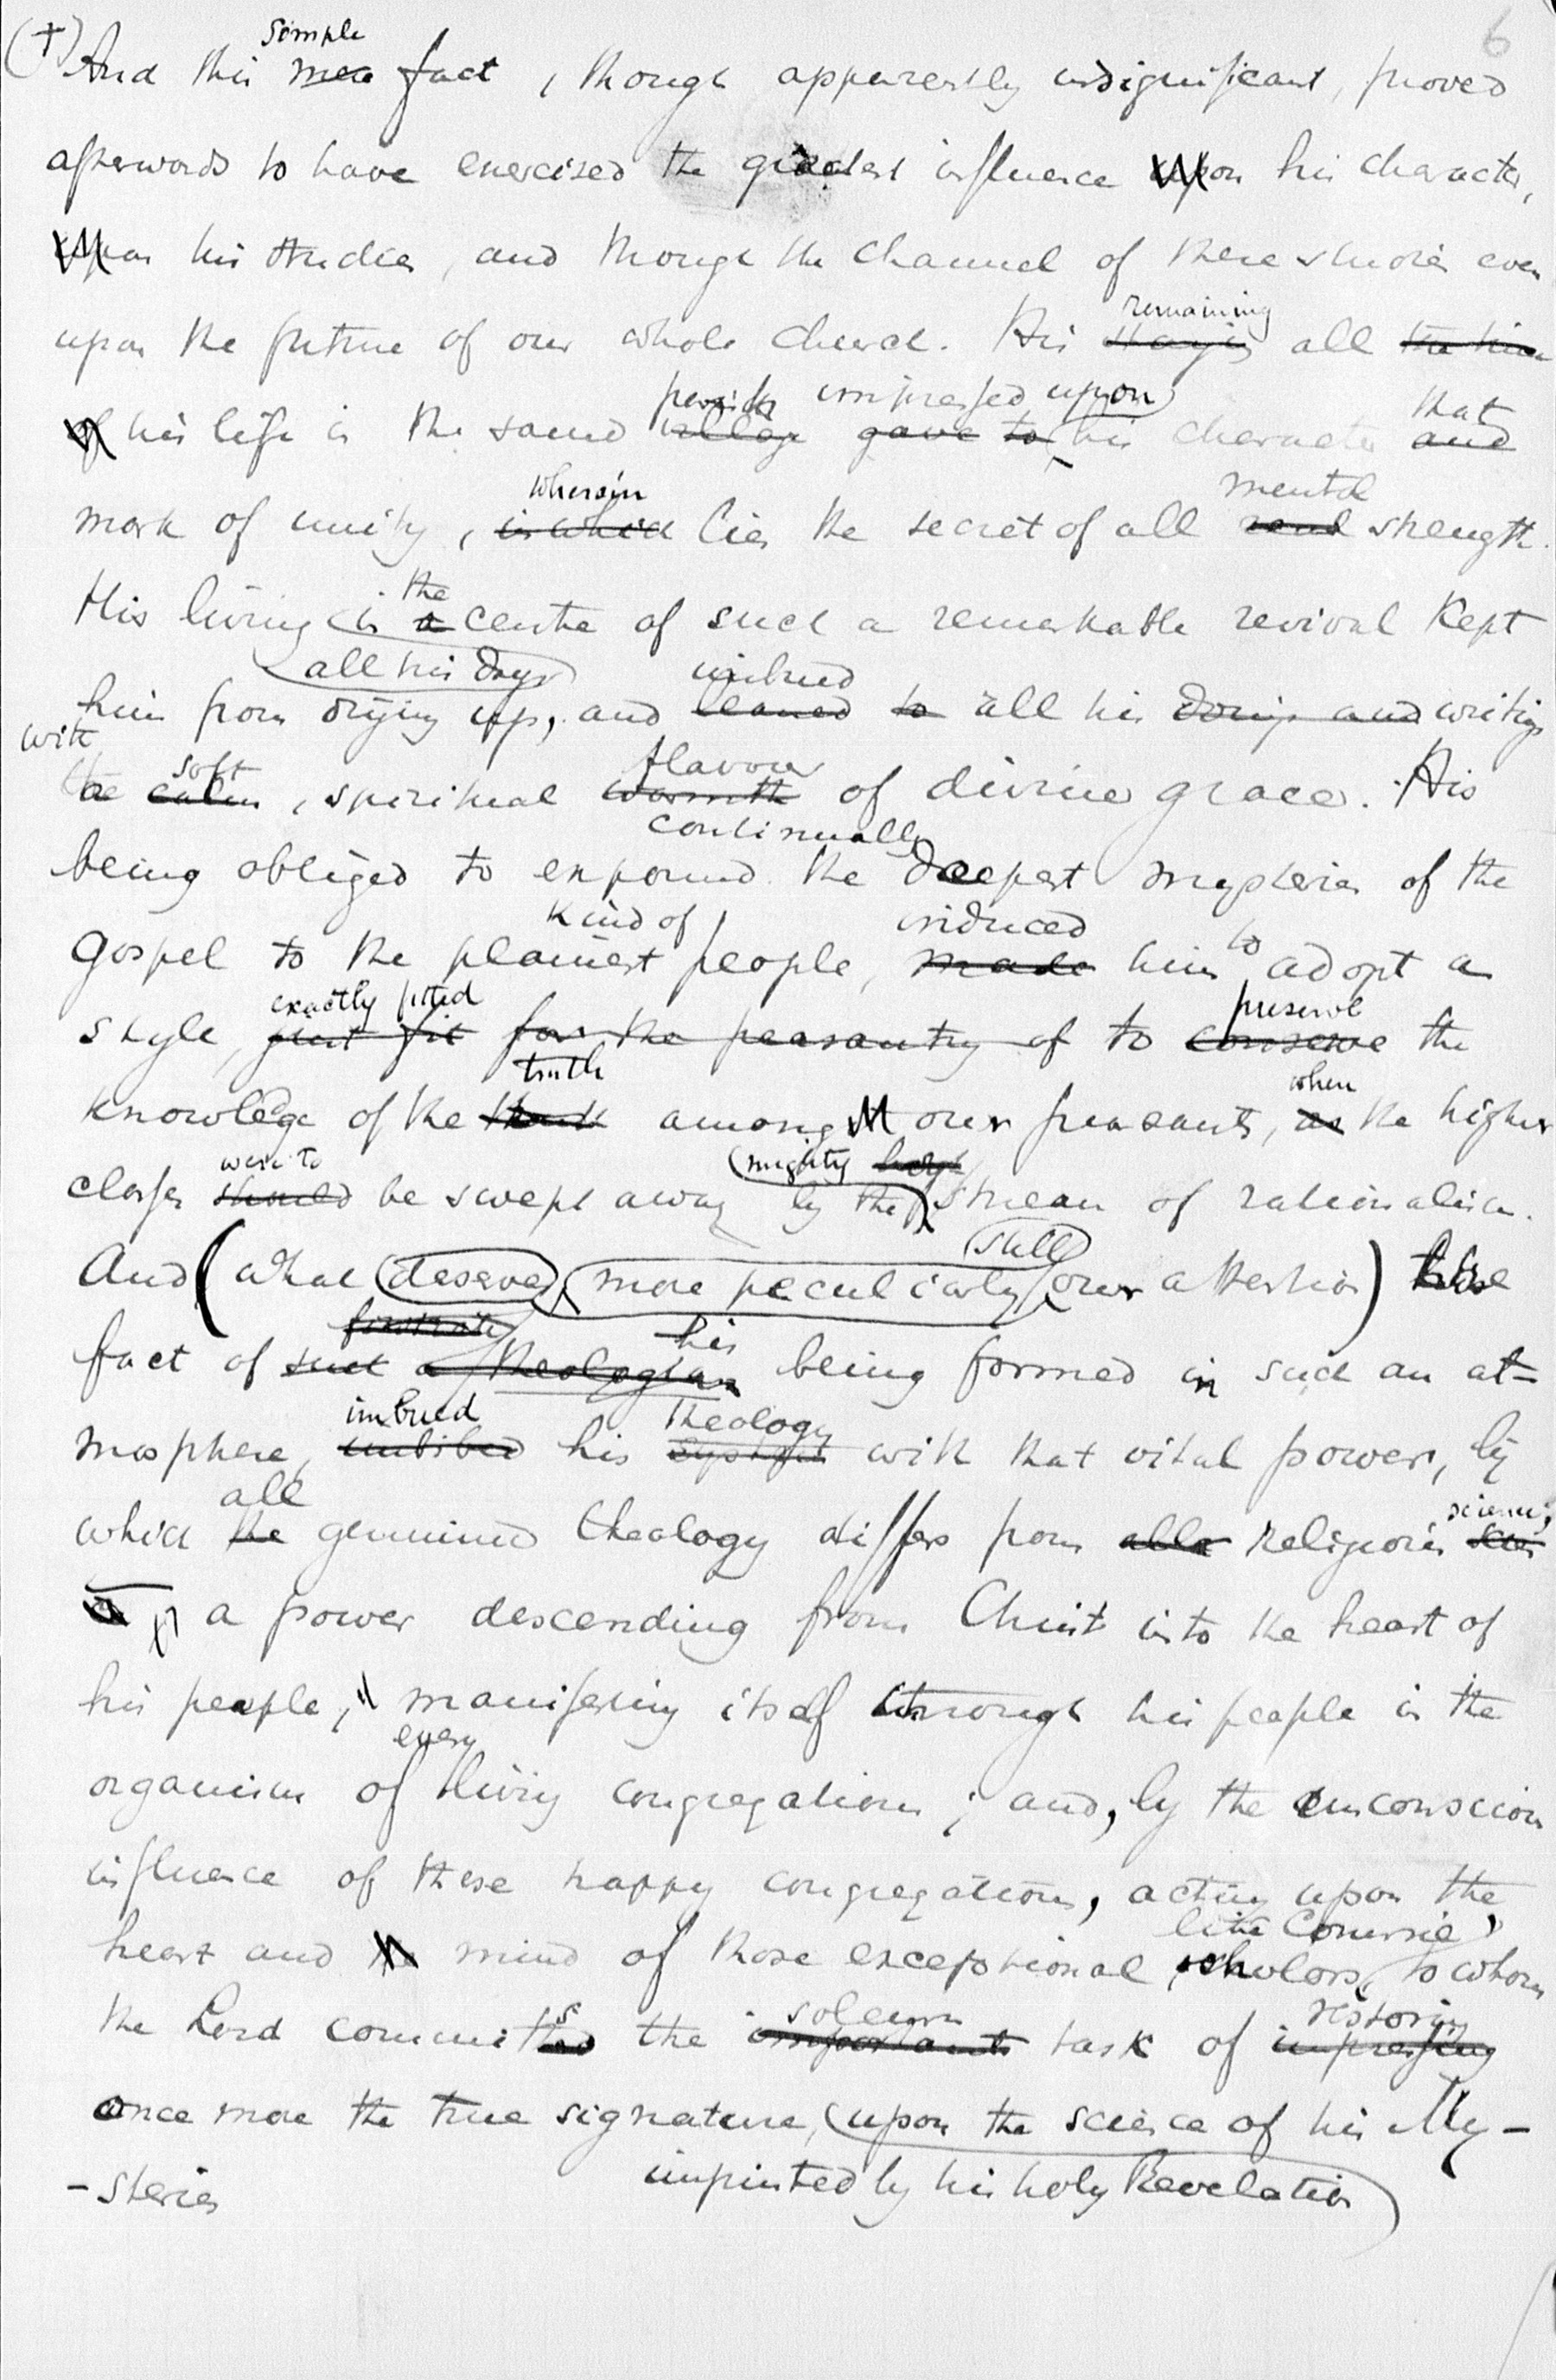 6
simple
(+) And this mere fact, though apparently insignificant, proved
afterwards to have exercised the greatest influence upon his character,
upon his studies, and through the channel of these studies even
remaining
upon the future of our whole church. His staying all the time
perish impressed upon that
of his life in the same village gave to his character and
wherein mental
mark of unity, in which lies the secret of all real strength.
the
His living in a centre of such a remarkable revival kept
all his days imbued
him from drying up, and leaned to all his doings and writings
with soft flavour
the calm, spiritual warmth of divine grace. His
continually
being obliged to expound the deepest mysteries of the
kind of induced to
gospel to the plainest people, made him adopt a
exactly fitted preserve
style, just fit for the peasantry of to conserve the
truth when
knowledge of the among our peasants, as the higher
were to mighty
classes should be swept away by the stream of rationalism.
still
And (what deserves more peculiarly our attention) the
his
fact of such a theologian being formed in such an at-
imbued theology
mosphere, imbibed his system with that vital power, by
all science;
which the genuine theology differs from religious
a power descending from Christ into the heart of
his people, manifesting itself through his people in the
every
organism of living congregations; and, by the unconscious
influence of these happy congregations, acting upon the
like Comrie,
heart and mind of those exceptional scholars, to whom
s solemn restoring
the Lord committed the important task of impressing
once more the true signature, upon the science of his My-
-steries imprinted by his holy Revelation